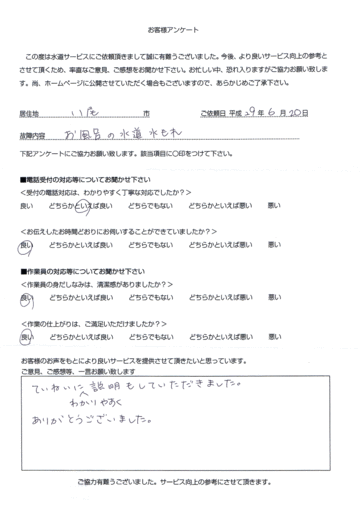 お客様アンケート
この度は水道サービスにご依頼頂きまして誠に有難うございました。今後、より良いサービス向上の参考と
させて頂くため、率直なご意見、ご感想をお聞かせ下さい。お忙しい中、恐れ入りますがご協力お願い致しま
す。尚、ホームページに公開させていただく場合もございますので、あらかじめご了承下さい。
居住地 市 ご依頼日 平成 29 年 6 月 20 日
故障内容 お風呂の水道 水もれ
下記アンケートにご協力お願い致します。該当項目に〇印をつけて下さい。
■電話受付の対応等についてお聞かせ下さい
<受付の電話対応は、わかりやすく丁寧な対応でしたか?>
良い どちらかといえば良い どちらでもない どちらかといえば悪い 悪い
<お伝えしたお時間どおりにお伺いすることができていましたか?>
良い どちらかといえば良い どちらでもない どちらかといえば悪い 悪い
■作業員の対応等についてお聞かせ下さい
<作業員の身だしなみは、清潔感がありましたか?>
良い どちらかといえば良い どちらでもない どちらかといえば悪い 悪い
<作業の仕上がりは、ご満足いただけましたか?>
良い どちらかといえば良い どちらでもない どちらかといえば悪い 悪い
お客様のお声をもとにより良いサービスを提供させて頂きたいと思っています。
ご意見、ご感想等、一言お願い致します
ていねいに説明もしていただきました。
わかりやすく
ありがとうございました。
ご協力有難うございました。サービス向上の参考にさせて頂きます。